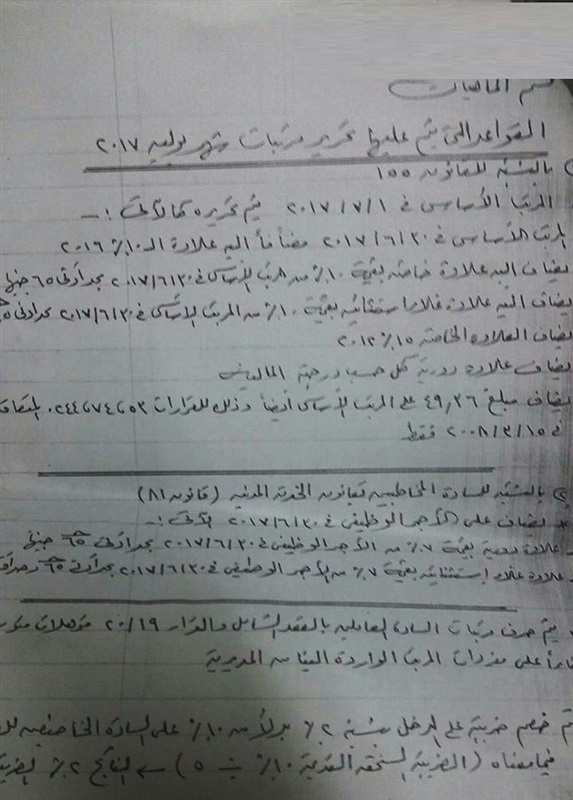 قسم الماهيات
القواعد التى يتم عليها تحرير مرتبات شهر يوليه ٢٠١٧
بالنسبة للقانون ١٥٥
المرتب الأساسى فى ٢٠١٧/٧/١ يتم تحريره كالآتى :ــ
المرتب الأساسى فى ٢٠١٧/٦/٣٠ مضافاً اليه علاوة الـ ١٠٪ ٢٠١٦
يضاف اليه علاوة خاصة بقيمة ١٠٪ من المرتب الأساسى فى ٢٠١٧/٦/٣٠ بحد أدنى ٦٥ جنيها
يضاف اليه علاوة غلاء استثنائية بقيمة ١٠٪ من المرتب الأساسى فى ٢٠١٧/٦/٣٠ بحد أدنى
يضاف العلاوة الخاصة ١٥٪ ٢٠١٢
يضاف علاوة دورية كل حسب درجته المالية
يضاف مبلغ ٤٩,٣٦ على المرتب الأساسى أيضاً وذلك للقرارات
فى ٢٠٠٨/٣/١٥ فقط
بالنسبة للسادة المخاطبين بقانون الخدمة المدنية (قانون ٨١)
يضاف على الأجر الوظيفى فى ٢٠١٧/٦/٣٠ الآتى :ــ
علاوة دورية بقيمة ٧٪ من الأجر الوظيفى فى ٢٠١٧/٦/٣٠ بحد أدنى ٦٥ جنيها
علاوة غلاء إستثنائية بقيمة ٧٪ من الأجر الوظيفى فى ٢٠١٧/٦/٣٠ بحد أدنى ٦٥
يتم صرف مرتبات السادة العاملين بالعقد الشامل والقرار ٢٠/١٩ مؤهلات
على مفردات المرتب الواردة الينا من المديرية
تم خصم ضريبة على الدخل بنسبة ٢٪ بدلاً من ١٠٪ على السادة الخاضعين
فيما معناه (الضريبة المستحقة القديمة ١٠٪ ÷ ٥) = الناتج ٢٪